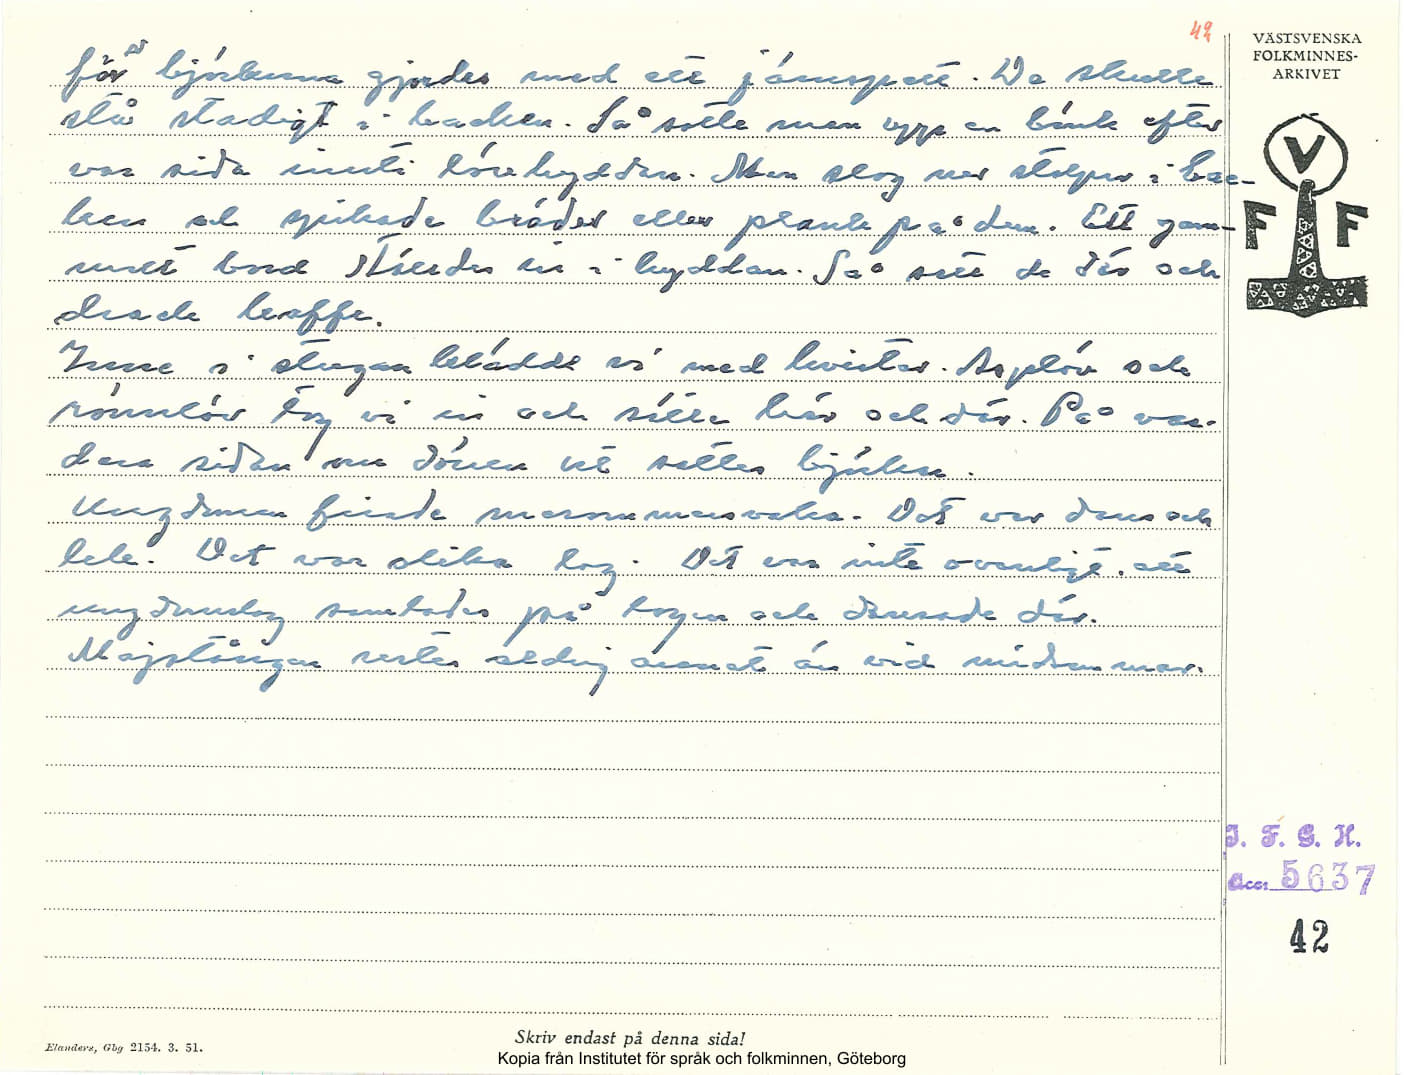 42
VÄSTSVENSKA
FOLKMINNES-
ARKIVET
för björkarna gjordes med ett järnspett. De skulle
stå stadigt i backen. Så satte man upp en bänk efter
var sida inuti lövhyddan. Man slog ner stolpar i bac-
ken och spikade bräder eller plank på dem. Ett gam-
malt bord ställdes in i hyddan. Så satt de där och
drack kaffe.
Inne i stugan klädde vi med kvistar. Asplöv och
rönnlöv tog vi in och satte här och där. På var-
dera sidan om dörren ut sattes björkar.
Ungdomen firade marsmansvaka. Det var dans och
lek. Det var olika lag. Det var inte ovanligt att
ungdomslag samlades på logen och dansade där.
Majstången restes aldrig annat än vid midsommar.
V
F F
I. F. G. H.
Acc. 5637
42
Skriv endast på denna sida!
Elanders, Gbg 2154. 3. 51.
Kopia från Institutet för språk och folkminnen, Göteborg